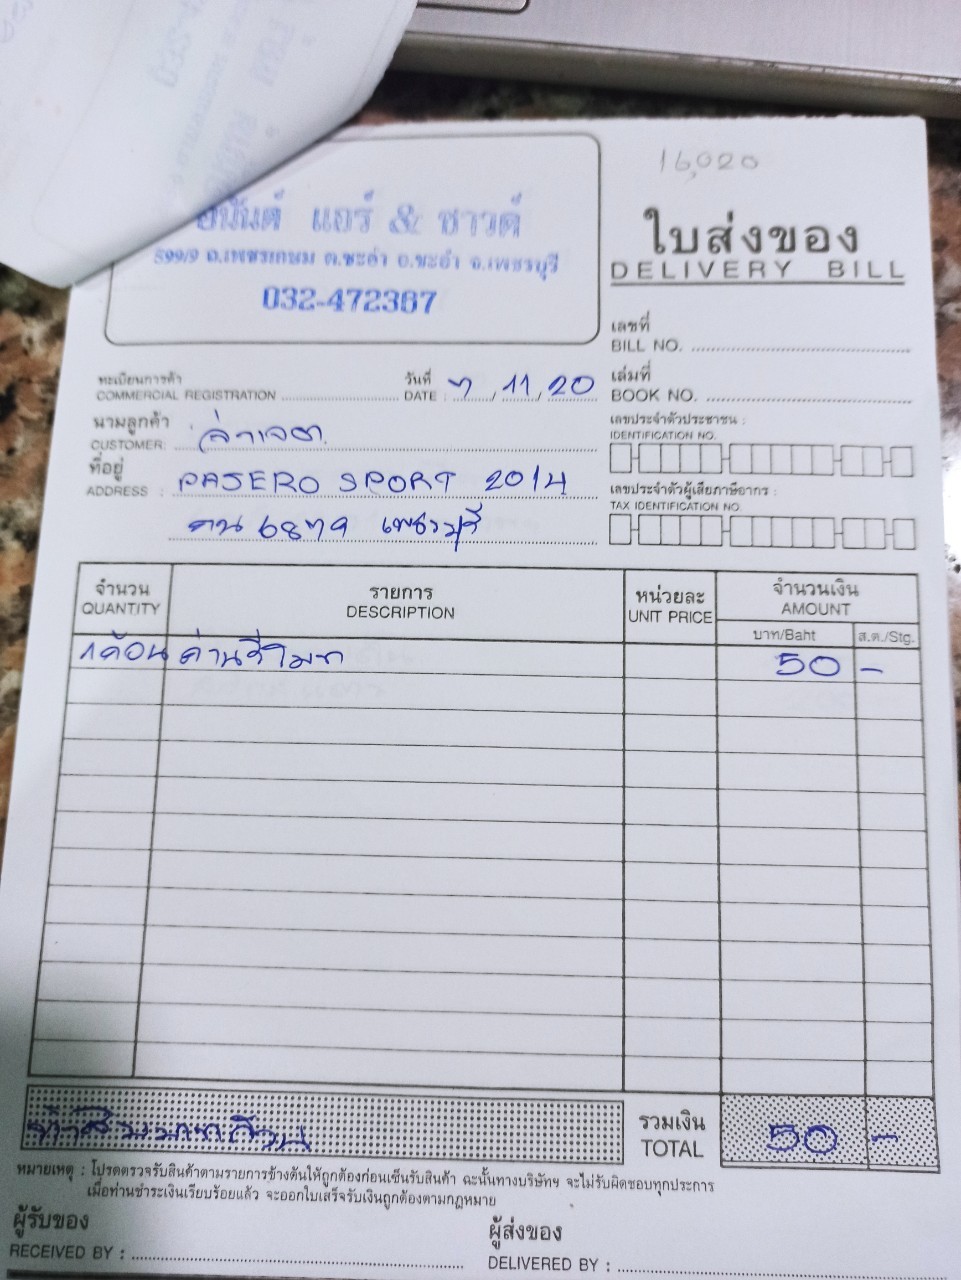 16,020
อนันต์ แอร์ & ซาวด์
599/9 ถ.เพชรเกษม ต.ชะอำ อ.ชะอำ จ.เพชรบุรี
032-472367
ใบส่งของ
DELIVERY BILL
เลขที่
BILL NO.
ทะเบียนการค้า
COMMERCIAL REGISTRATION
วันที่
DATE : 7, 11, 20
เล่มที่
BOOK NO.
นามลูกค้า
CUSTOMER:
เลขประจำตัวประชาชน :
IDENTIFICATION NO.
ที่อยู่
ADDRESS : PASERO SPORT 2014
เลขประจำตัวผู้เสียภาษีอากร :
TAX IDENTIFICATION NO.
6879 เพชรบุรี
จำนวน
QUANTITY
รายการ
DESCRIPTION
หน่วยละ
UNIT PRICE
จำนวนเงิน
AMOUNT
บาท/Baht ส.ต./Stg.
1 ก้อน ถ่านรีโมท 50 -
ห้าสิบบาทถ้วน
รวมเงิน
TOTAL
50 -
หมายเหตุ : โปรดตรวจรับสินค้าตามรายการข้างต้นให้ถูกต้องก่อนเซ็นรับสินค้า ฉะนั้นทางบริษัทฯ จะไม่รับผิดชอบทุกประการ
เมื่อท่านชำระเงินเรียบร้อยแล้ว จะออกใบเสร็จรับเงินถูกต้องตามกฎหมาย
ผู้รับของ
RECEIVED BY :
ผู้ส่งของ
DELIVERED BY :